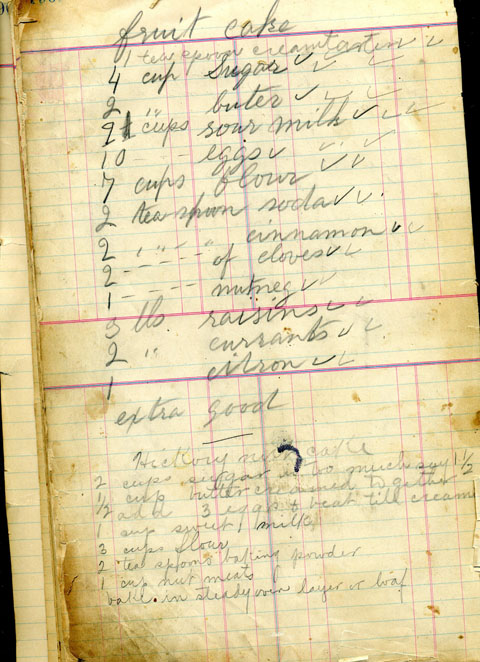 fruit cake
1 tea spoon creamtarter
4 cup Sugar
2 " buter
2 cups sour milk
10 - - - eggs
7 cups flour
2 tea spoon soda
2 " - " - " cinnamon
2 - - - - - of cloves
1 - - - - - nutmeg
3 lbs raisins
2 " currants
1 citron
extra good
Hickory nut cake
2 cups suggar is to much say 1 1/2
1/2 cup butter creamed to gether
add 3 eggs & beat till creame
1 cup sweet milk
3 cups flour
2 tea spoons baking powder
1 cup nut meats
bake in steady oven layer or loaf